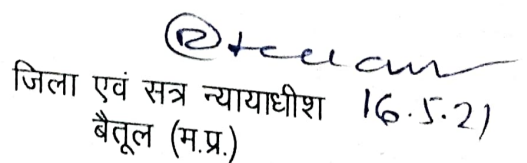 जिला एवं सत्र न्यायाधीश 16.5.21
बैतूल (म.प्र.)